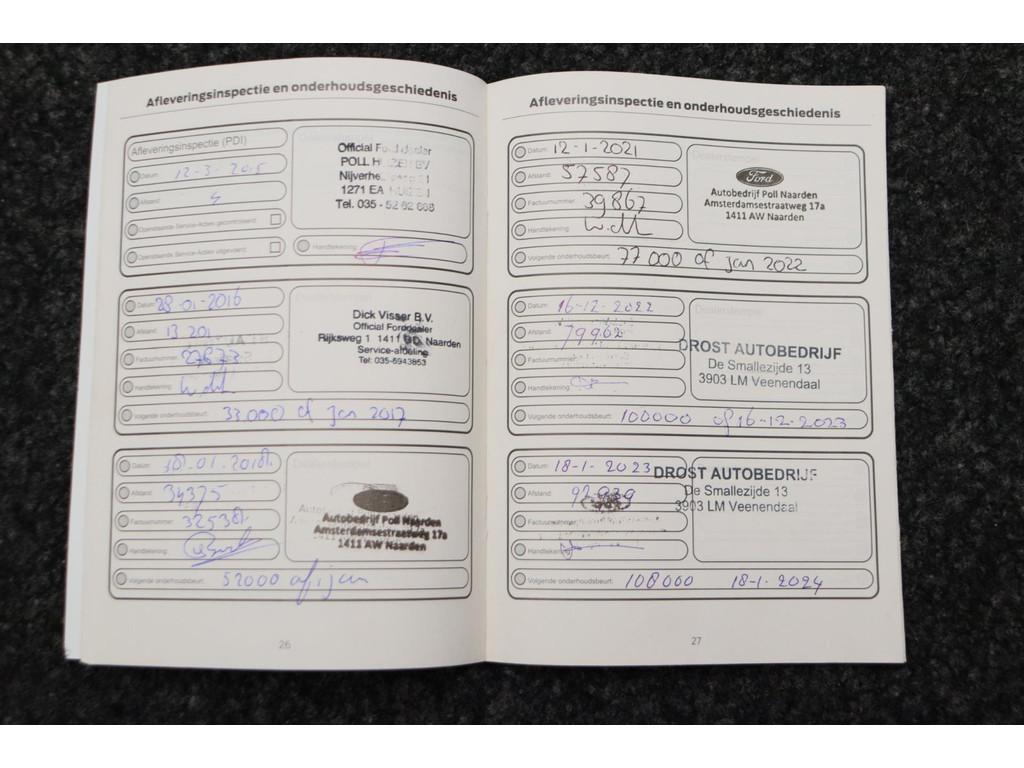 Afleveringsinspectie en onderhoudsgeschiedenis
Afleveringsinspectie (PDI)
Datum: 12-3-2015
Afstand:
Openstaande Service-Acties gecontroleerd:
Openstaande Service-Acties uitgevoerd:
Official Ford dealer
POLL
Nijverhe
1271 EA
Tel. 035 -
Handtekening:
Datum: 28-01-2016
Afstand: 13 201
Factuurnummer: 27873
Handtekening:
Dick Visser B.V.
Official Forddealer
Rijksweg 1 1411 Naarden
Service-afdeling
Tel: 035-6943853
Volgende onderhoudsbeurt: 33.000 of jan 2017
Datum: 30-01-2018
Afstand: 34375
Factuurnummer: 32538
Handtekening:
Autobedrijf Poll Naarden
Amsterdamsestraatweg 17a
1411 AW Naarden
Volgende onderhoudsbeurt: 52000 of jan
26
Afleveringsinspectie en onderhoudsgeschiedenis
Datum: 12-1-2021
Afstand: 57587
Factuurnummer: 39867
Handtekening:
Dealerstempel
Ford
Autobedrijf Poll Naarden
Amsterdamsestraatweg 17a
1411 AW Naarden
Volgende onderhoudsbeurt: 77 000 of jan 2022
Datum: 16-12-2022
Afstand: 79962
Factuurnummer:
Handtekening:
Dealerstempel
DROST AUTOBEDRIJF
De Smallezijde 13
3903 LM Veenendaal
Volgende onderhoudsbeurt: 100000 of 16-12-2023
Datum: 18-1-2023
Afstand: 92939
Factuurnummer:
Handtekening:
DROST AUTOBEDRIJF
De Smallezijde 13
3903 LM Veenendaal
Volgende onderhoudsbeurt: 108000 18-1-2024
27